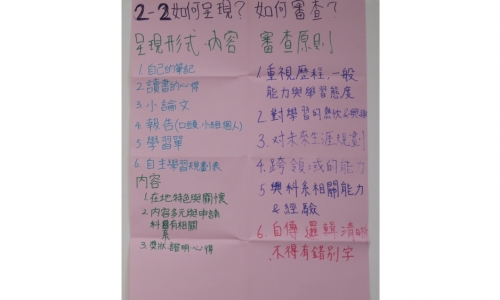 2-2如何呈現? 如何審查?
呈現形式 內容
1.自己的筆記
2.讀書的心得
3.小論文
4.報告(口頭.小組.個人)
5.學習單
6.自主學習規劃表
內容
1.在地特色與關懷
2.內容多元與申請
科系有相關
3.獎狀.證明.心得
審查原則
1.重視歷程.一般
能力與學習態度
2.對學習的熱忱
3.對未來生涯規劃
4.跨領域的能力
5.與科系相關能力
&經驗
6.自傳邏輯清
不得有錯別字